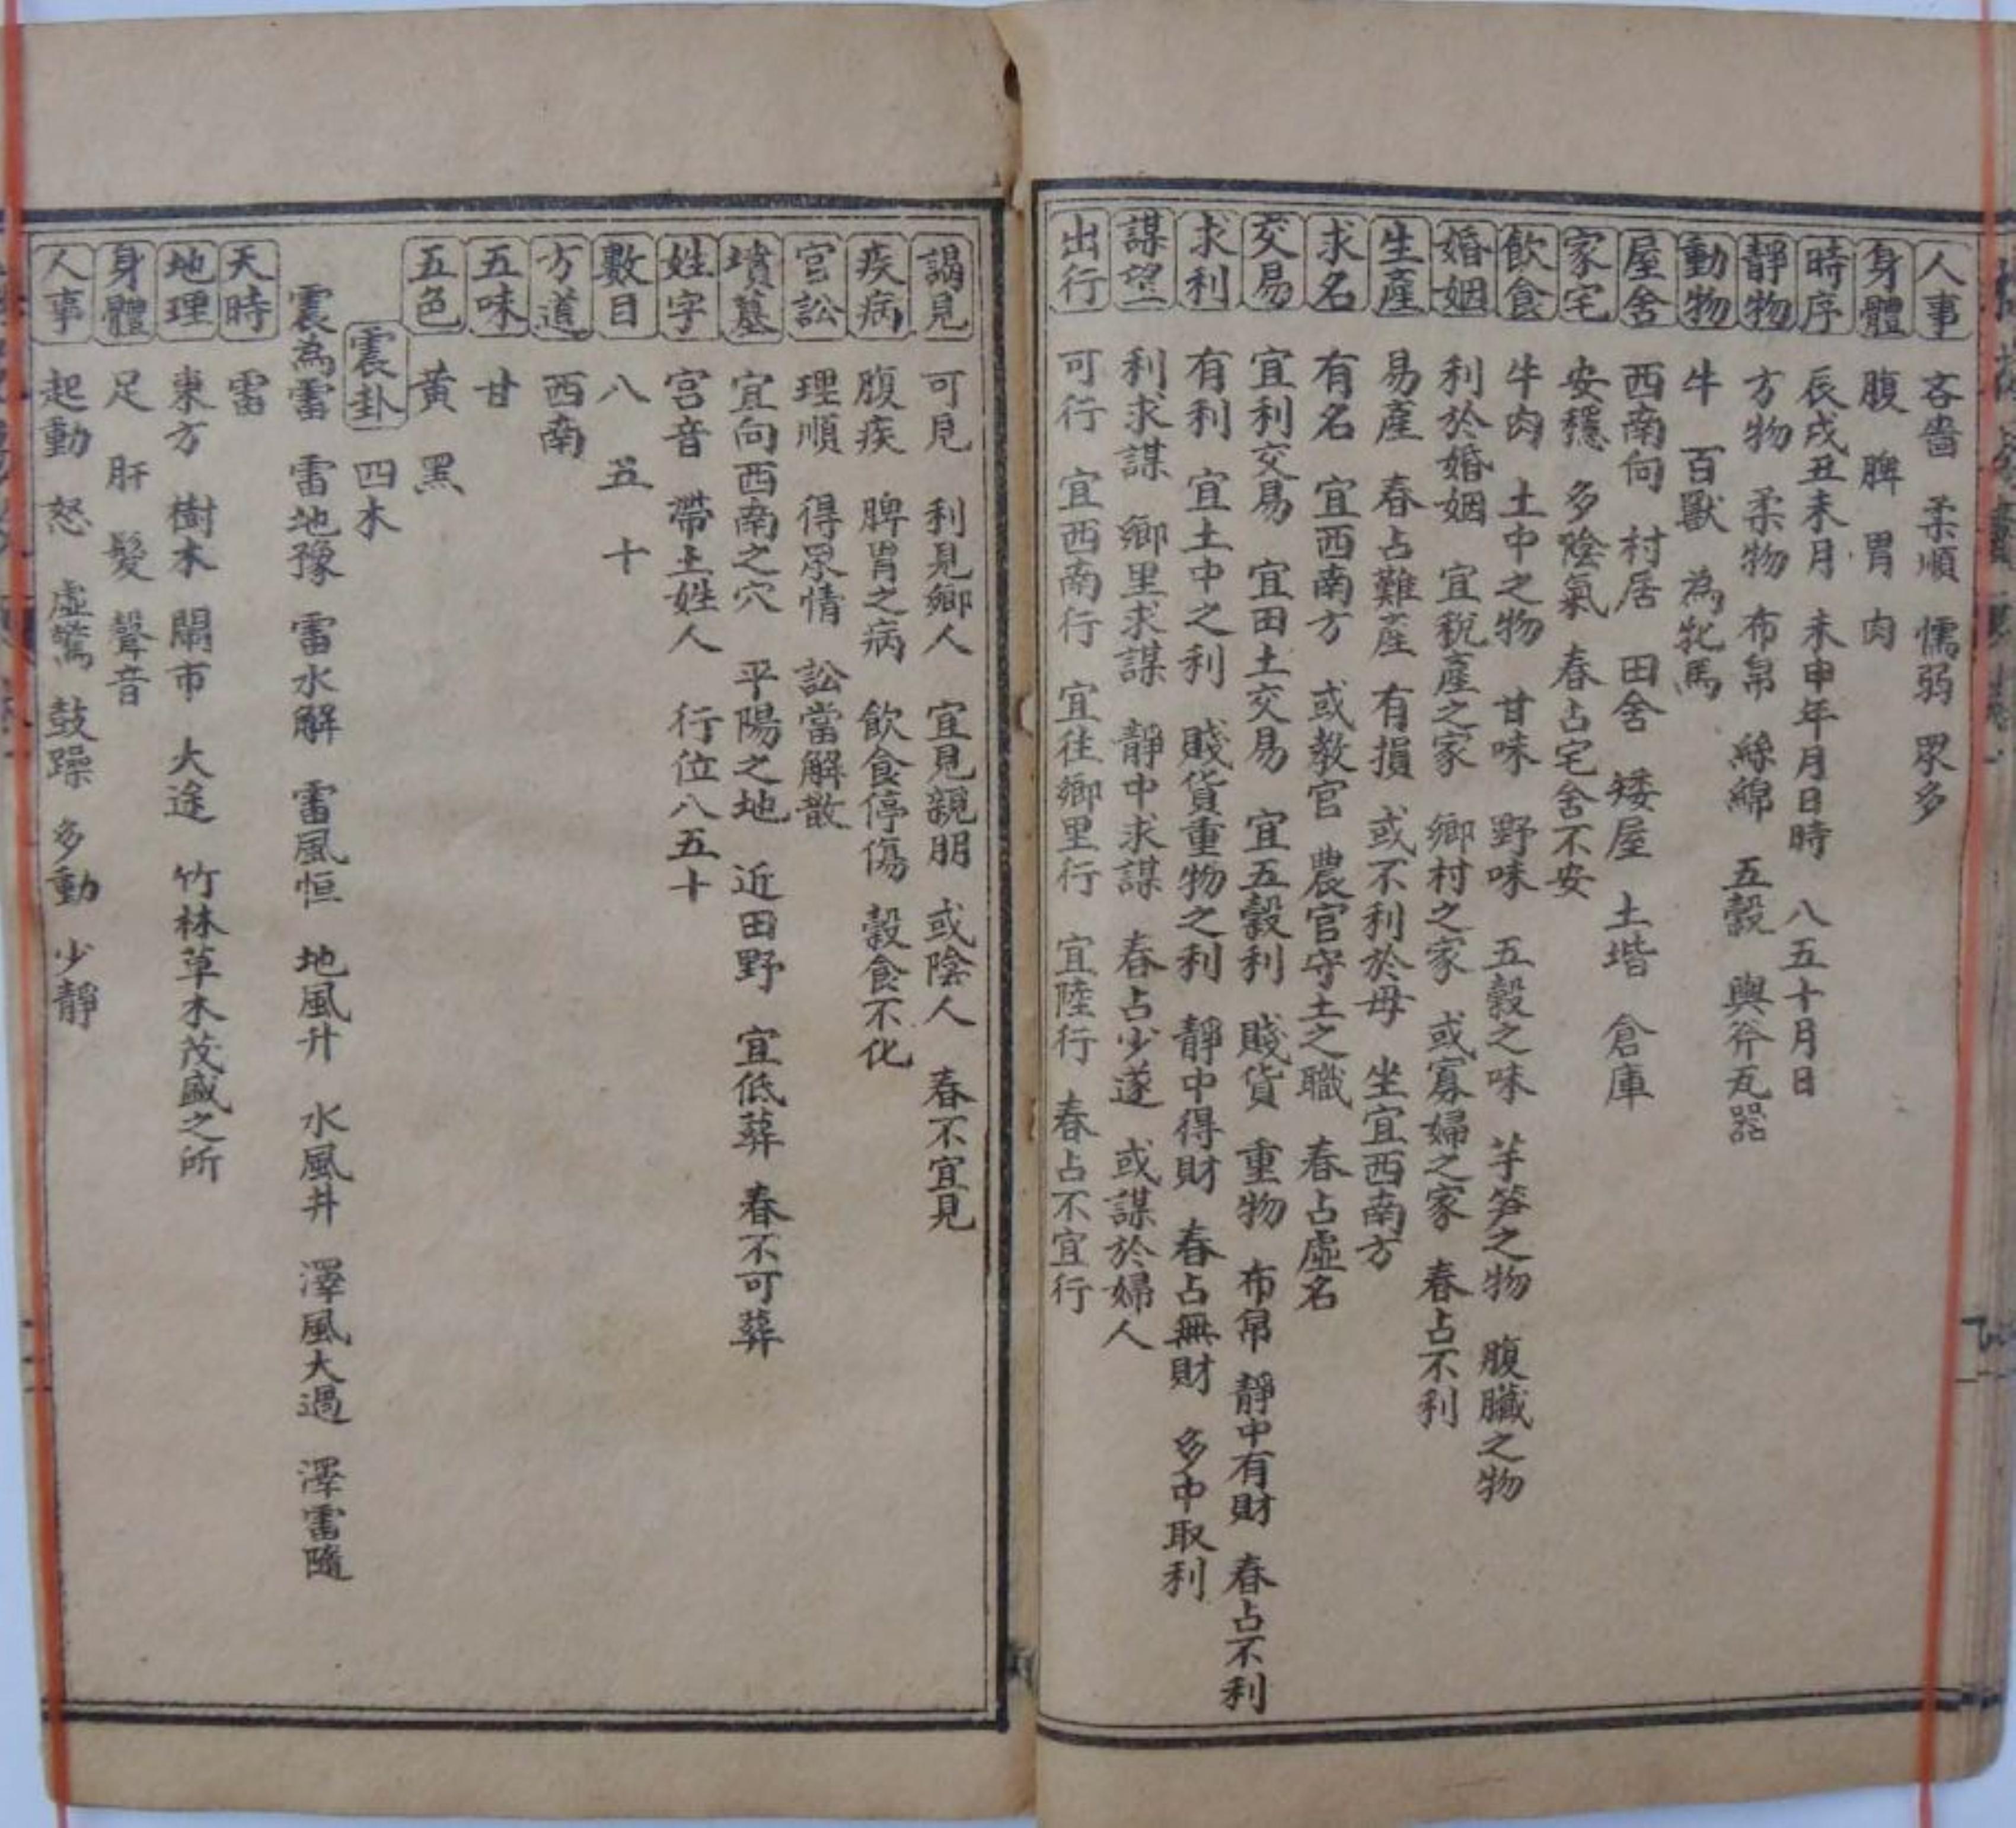 人事 吝嗇 柔順 懦弱 眾多
身體 腹 脾 胃 肉
時序 辰戌丑未月 未申年月日時 八五十月日
靜物 方物 柔物 布帛 絲綿 五穀 輿斧瓦器
動物 牛 百獸 為牝馬
屋舍 西南向 村居 田舍 矮屋 土堦 倉庫
家宅 安穩 多陰氣 春占宅舍不安
飲食 牛肉 土中之物 甘味 野味 五穀之味 芋筍之物 腹臟之物
婚姻 利於婚姻 宜稅產之家 鄉村之家 或寡婦之家 春占不利
生產 易產 春占難產 有損 或不利於母 坐宜西南方
求名 有名 宜西南方 或教官 農官守土之職 春占虛名
交易 宜利交易 宜田土交易 宜五穀利 賤貨 重物 布帛 靜中有財 春占不利
求利 有利 宜土中之利 賤貨重物之利 靜中得財 春占無財 多中取利
謀望 利求謀 鄉里求謀 靜中求謀 春占少遂 或謀於婦人
出行 可行 宜西南行 宜往鄉里行 宜陸行 春占不宜行
謁見 可見 利見鄉人 宜見親朋 或陰人 春不宜見
疾病 腹疾 脾胃之病 飲食停傷 穀食不化
官訟 理順 得眾情 訟當解散
墳墓 宜向西南之穴 平陽之地 近田野 宜低葬 春不可葬
姓字 宮音 帶土姓人 行位八五十
數目 八 五 十
方道 西南
五味 甘
五色 黃 黑
震卦 四木
震為雷 雷地豫 雷水解 雷風恒 地風升 水風井 澤風大過 澤雷隨
天時 雷
地理 東方 樹木 鬧市 大途 竹林草木茂盛之所
身體 足 肝 髮 聲音
人事 起動 怒 虛驚 鼓躁 多動 少靜